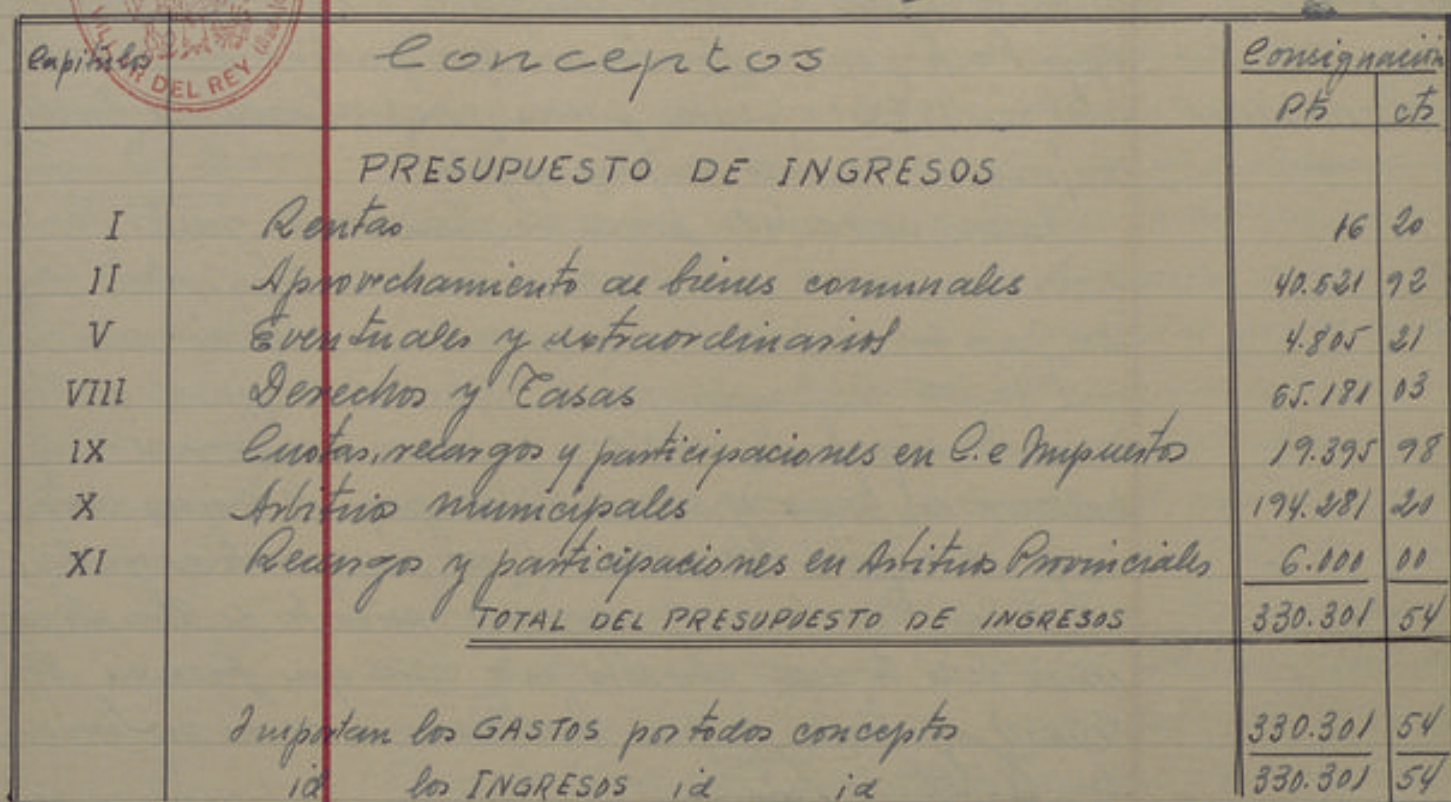 VILLAR DEL REY
Capítulos Conceptos Consignación
Pts cts
PRESUPUESTO DE INGRESOS
I Rentas 16 20
II Aprovechamiento de bienes comunales 40.621 92
V Eventuales y extraordinarios 4.805 21
VIII Derechos y Tasas 65.181 03
IX Cuotas, recargos y participaciones en C. e Impuestos 19.395 98
X Arbitrios municipales 194.281 20
XI Recargos y participaciones en Arbitrios Provinciales 6.000 00
TOTAL DEL PRESUPUESTO DE INGRESOS 330.301 54
Importan los GASTOS por todos conceptos 330.301 54
id los INGRESOS id id 330.301 54